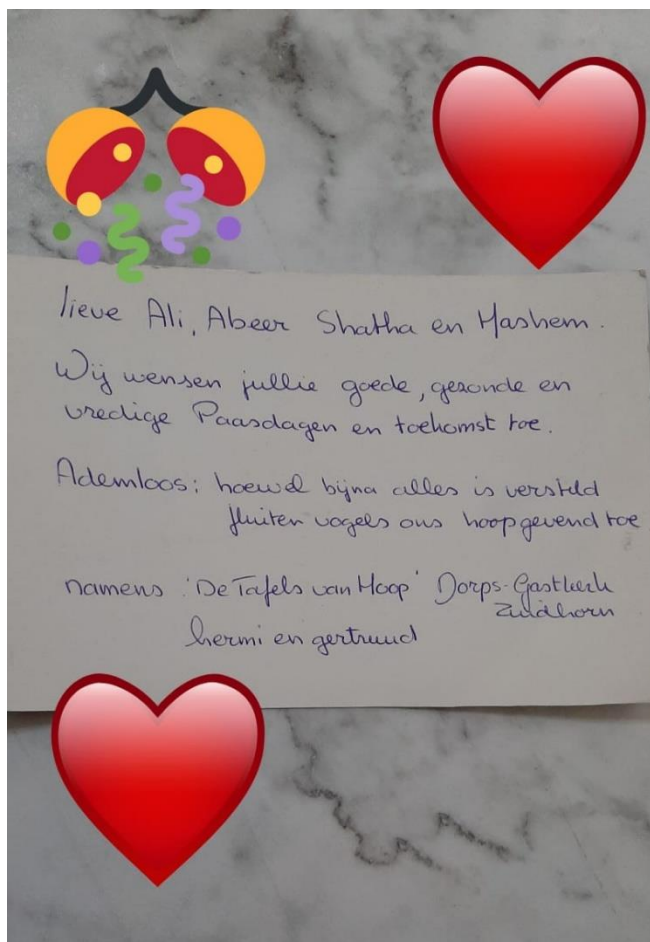 lieve Ali, Abeer Shatha en Hashem.
Wij wensen jullie goede, gezonde en
vredige Paasdagen en toekomst toe.
Ademloos: hoewel bijna alles is verstild
fluiten vogels ons hoopgevend toe
namens 'De Tafels van Hoop' Dorps-Gastkerk
Zuidhorn
hermi en gertruud